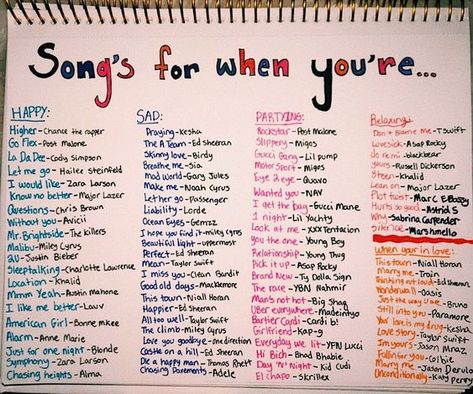 Song's for when you're...
HAPPY:
Higher-Chance the rapper
Go Flex-Post Malone
La Da Dee-Cody Simpson
Let me go-Hailee Steinfeld
I would like-Zara Larson
Know no better-Major Lazer
Questions-Chris Brown
Without you-Avicii
Mr. Brightside-The killers
Malibu-Miley Cyrus
2U-Justin Bieber
Sleeptalking-Charlotte Lawrence
Location-Khalid
Mmm Yeah-Austin Mahone
I like me better-Lauv
American Girl-Bonnie McKee
Alarm-Anne Marie
Just for one night-Blonde
Symphony-Zara Larson
Chasing heights-Alma
SAD:
Praying-Kesha
The A Team-Ed Sheeran
Skinny love-Birdy
Breathe me-Sia
Mad World-Gary Jules
Make me-Noah Cyrus
Let her go-Passenger
Liability-Lorde
Ocean Eyes-
I hope you find it-miley cyrus
Beautiful light-uppermost
Perfect-Ed Sheeran
Mean-Taylor Swift
I miss you-Clean Bandit
Good old days-Macklemore
This town-Niall Horan
Happier-Ed Sheeran
All too well-Taylor Swift
The climb-Miley Cyrus
Love you goodbye-One direction
Castle on a hill-Ed Sheeran
Die a happy man-Thomas Rhett
Chasing Pavements-Adele
PARTYING:
Rockstar-Post Malone
Slippery-Migos
Gucci Gang-Lil pump
Motor Sport-Migos
Eye 2 eye-
Wanted you-NAV
I get the bag-Gucci Mane
1 night-Lil Yachty
Look at me-XXXTentacion
You the one-Young Boy
Relationship-Young Thug
Pick it up-Asap Rocky
Brand New-Ty Dolla Sign
The race-YBN Nahmir
Mans not hot-Big Shaq
Uber everywhere-Madeintyo
Bartier Cardi-Cardi b!
Girlfriend-Kap-g
Everyday we lit-YFN Lucci
Hi Bich-Bhad Bhabie
Day 'N' Night-Kid Cudi
El chapo-Skrillex
Relaxing:
Don't Blame me-T Swift
Lovesick-Asap Rocky
do re mi-blackbear
Yours-Russell Dickerson
8teen-Khalid
Lean on-Major Lazer
Not twist-Marc E Bassy
Hurts so good-Astrid S
Why-Sabrina Carpenter
Silence-Marshmello
When your in love:
This town-Niall Horan
Marry me-Train
Thinking out loud-Ed Sheeran
Wonderwall-Oasis
Just the way U are-Bruno
Still into you-Paramore
Your love is my drug-Kesha
Love Story-Taylor Swift
I'm yours-Jason Mraz
Fallin for you-Colbie
Marry me-Jason Derulo
Unconditionally-Katy Perry